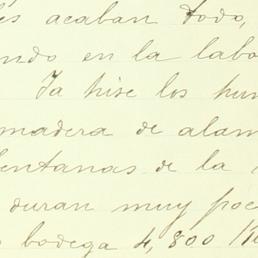 és acaban todo,
ndo en la labo
Ya hise los hum
madera de alam
entanas de la
duran muy poc
bodega 4,800